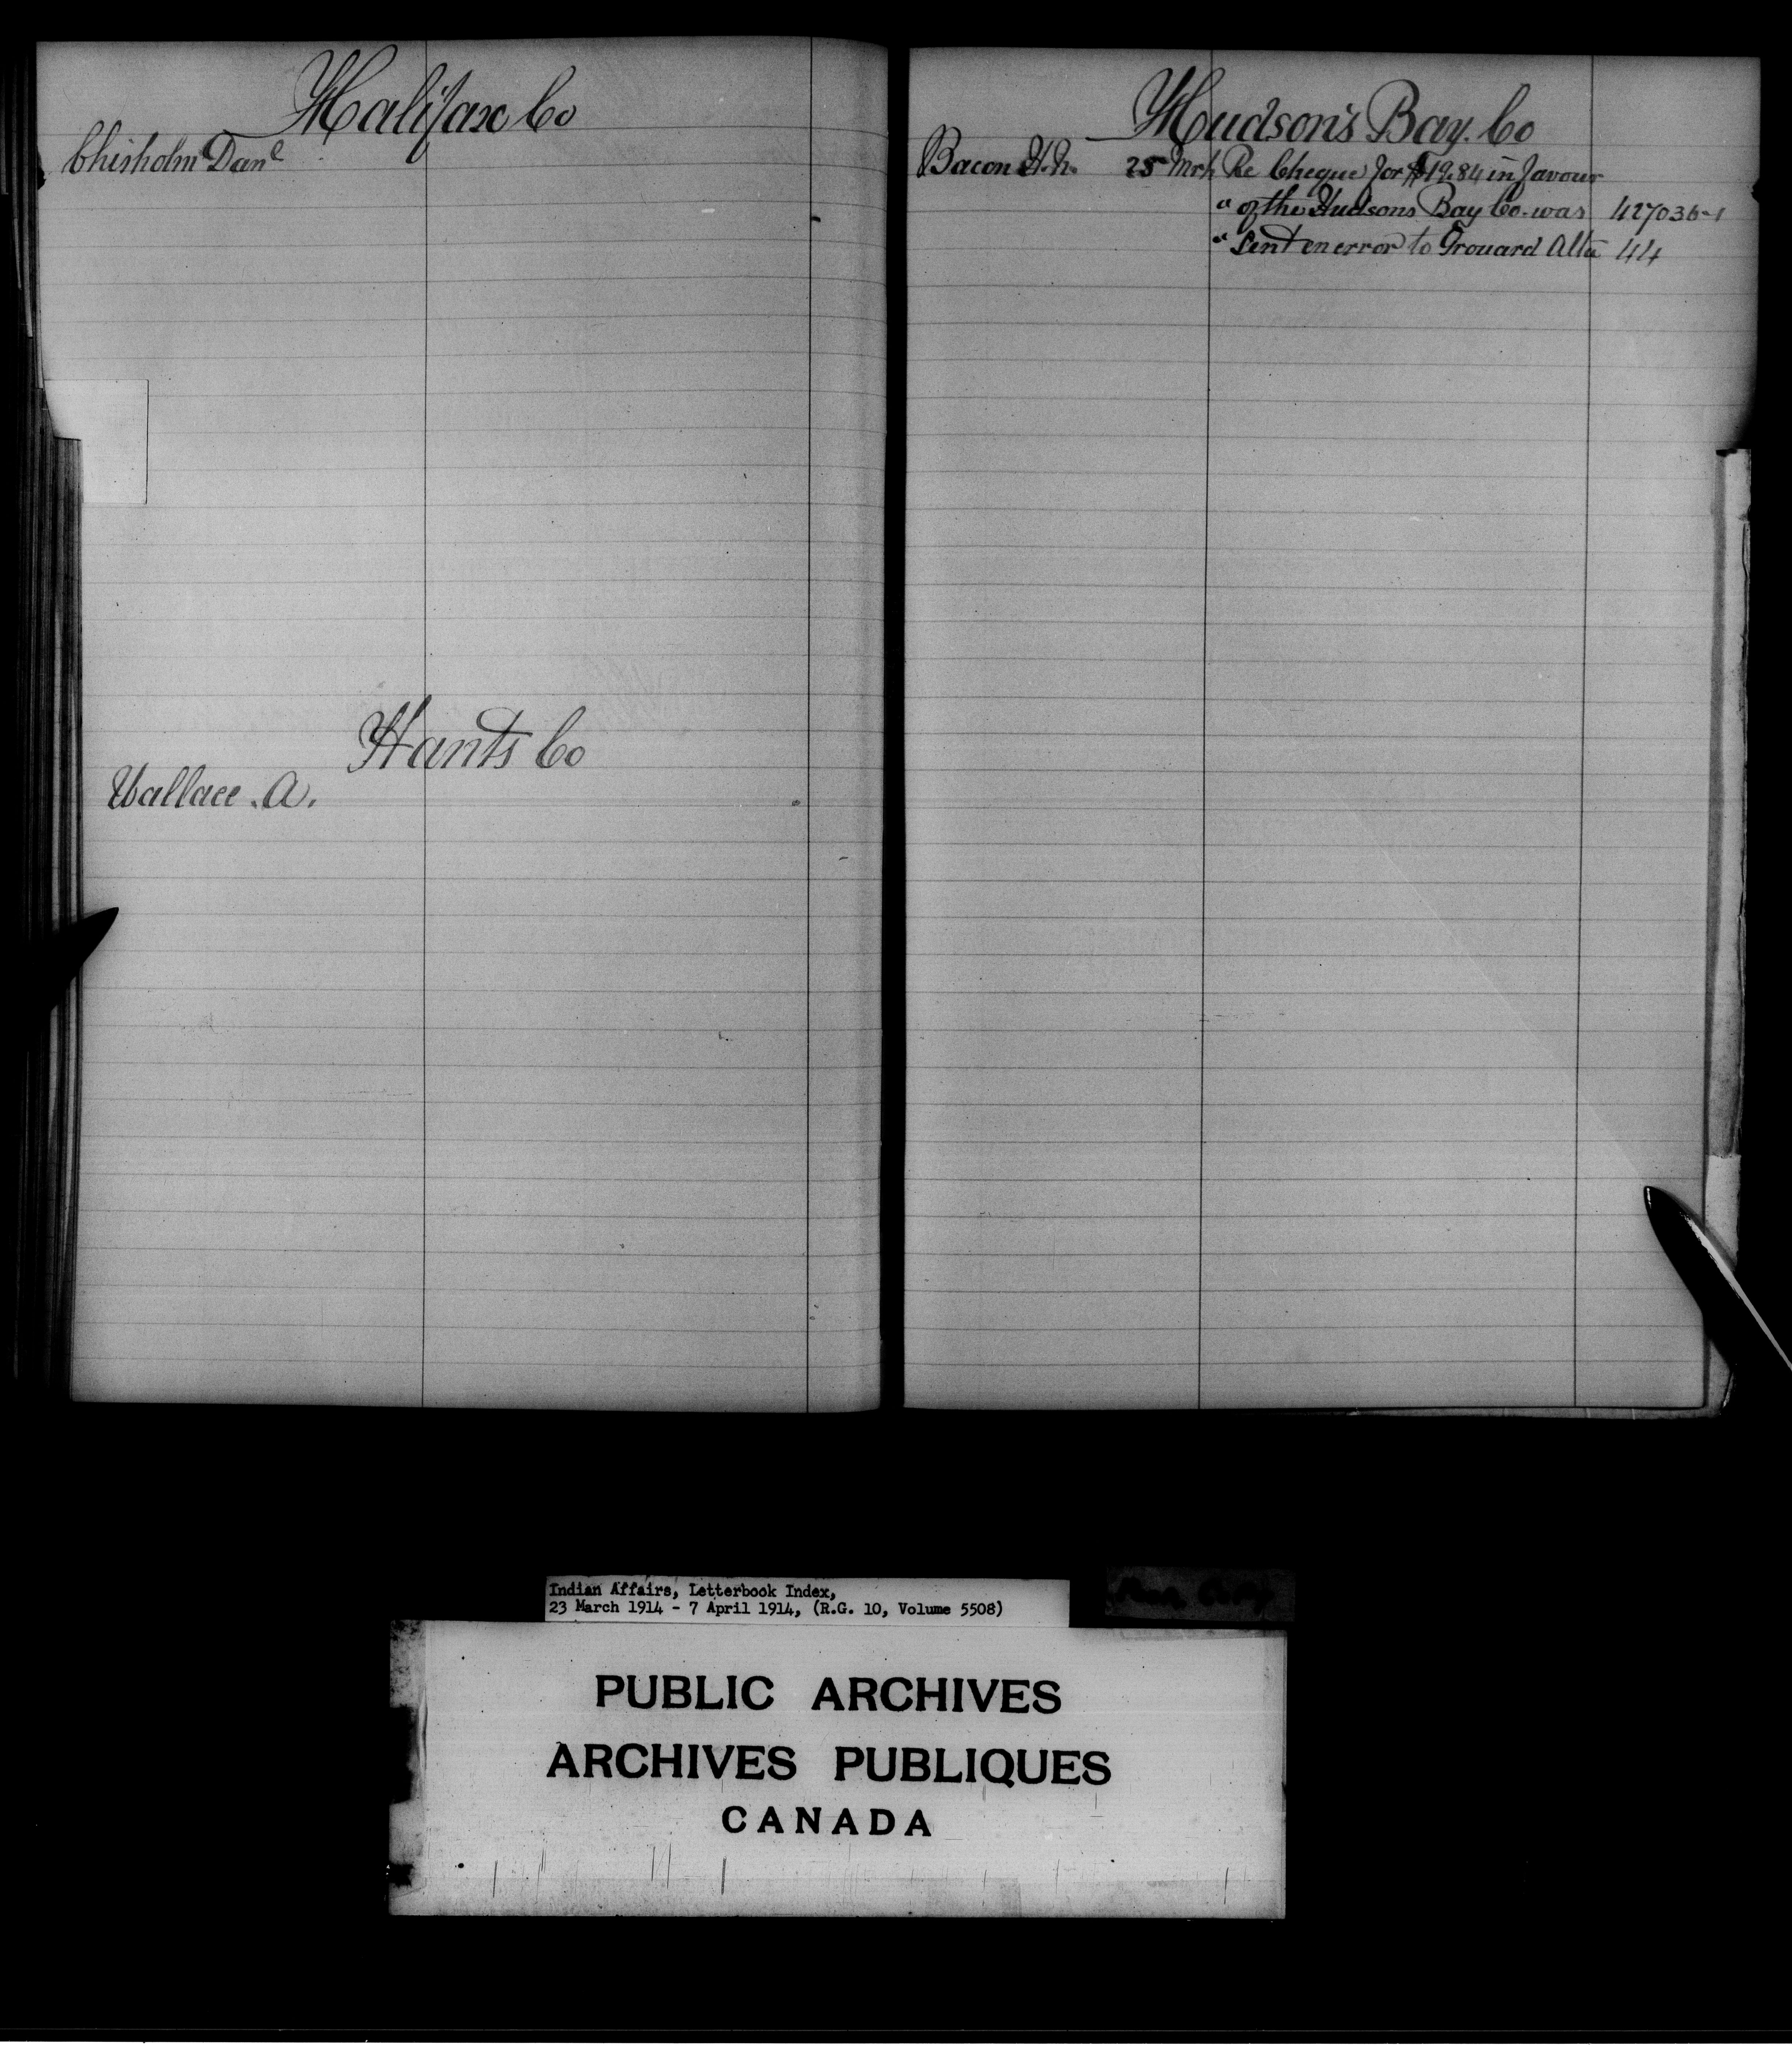 Halifax Co
Chisholm Danl
Hants Co
Wallace. A.
Hudson's Bay. Co
Bacon H.N. 25 Mrh Re Cheque for $19.84 in favour
" of the Hudsons Bay Co. was 427036-1
" Sent en error to Grouard Alta 44
Indian Affairs, Letterbook Index,
23 March 1914 - 7 April 1914, (R.G. 10, Volume 5508)
PUBLIC ARCHIVES
ARCHIVES PUBLIQUES
CANADA